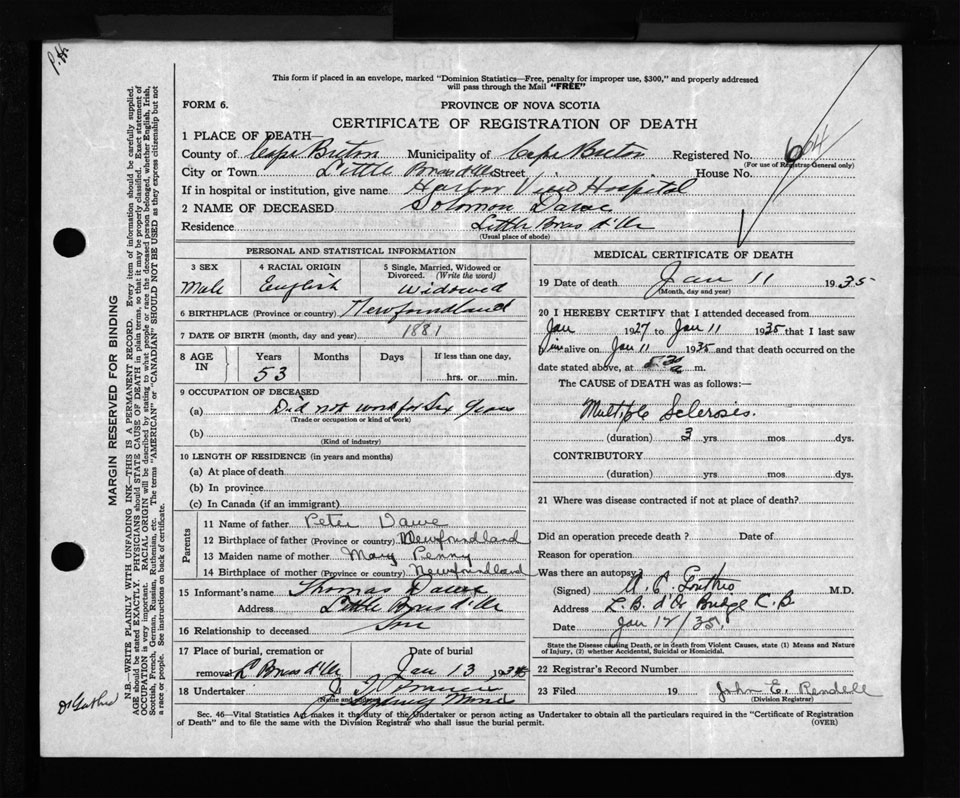 P.H.
This form if placed in an envelope, marked "Dominion Statistics—Free, penalty for improper use, $300," and properly addressed
will pass through the Mail "FREE"
FORM 6.
PROVINCE OF NOVA SCOTIA
CERTIFICATE OF REGISTRATION OF DEATH
1 PLACE OF DEATH—
County of Cape Breton Municipality of Cape Breton Registered No. 664
(For use of Registrar General only)
City or Town Little Bras d'Or Street House No.
If in hospital or institution, give name Harbor View Hospital
2 NAME OF DECEASED Solomon Dawe
Residence Little Bras d'Or
(Usual place of abode)
PERSONAL AND STATISTICAL INFORMATION
3 SEX 4 RACIAL ORIGIN 5 Single, Married, Widowed or Divorced. (Write the word)
Male English Widowed
6 BIRTHPLACE (Province or country) Newfoundland
7 DATE OF BIRTH (month, day and year) 1881
8 AGE IN Years Months Days If less than one day,
53 hrs. or min.
9 OCCUPATION OF DECEASED
(a) Did not work for Six Years
(Trade or occupation or kind of work)
(b)
(Kind of industry)
10 LENGTH OF RESIDENCE (in years and months)
(a) At place of death
(b) In province
(c) In Canada (if an immigrant)
Parents
11 Name of father Peter Dawe
12 Birthplace of father (Province or country) Newfoundland
13 Maiden name of mother Mary Penny
14 Birthplace of mother (Province or country) Newfoundland
15 Informant's name Thomas Dawe
Address Little Bras d'Or
16 Relationship to deceased Son
17 Place of burial, cremation or Date of burial
removal L Bras d'Or Jan 13 1935
18 Undertaker J. T.
(Name and address) Sydney Mines
MEDICAL CERTIFICATE OF DEATH
19 Date of death Jan 11 1935
(Month, day and year)
20 I HEREBY CERTIFY that I attended deceased from
Jan 1927 to Jan 11 1935 that I last saw
him alive on Jan 11 1935 and that death occurred on the
date stated above, at 5 30 a m.
The CAUSE of DEATH was as follows:—
Multiple Sclerosis.
(duration) 3 yrs mos. dys.
CONTRIBUTORY
(duration) yrs mos. dys.
21 Where was disease contracted if not at place of death?
Did an operation precede death? Date of
Reason for operation
Was there an autopsy?
(Signed) M.D.
Address L.B. d'Or Bridge C.B
Date Jan 12/35.
State the Disease causing Death, or in death from Violent Causes, state (1) Means and Nature
of Injury, (2) whether Accidental, Suicidal or Homicidal.
22 Registrar's Record Number
23 Filed 19 John E. Rendell
(Division Registrar)
Sec. 46—Vital Statistics Act makes it the duty of the Undertaker or person acting as Undertaker to obtain all the particulars required in the "Certificate of Registration
of Death" and to file the same with the Division Registrar who shall issue the burial permit.
(OVER)
MARGIN RESERVED FOR BINDING
N.B.—WRITE PLAINLY WITH UNFADING INK—THIS IS A PERMANENT RECORD. Every item of information should be carefully supplied.
AGE should be stated EXACTLY. PHYSICIANS should STATE CAUSE OF DEATH in plain terms, so that it may be properly classified. Exact statement of
OCCUPATION is very important. RACIAL ORIGIN will be described by stating to what people or race the deceased person belonged, whether English, Irish,
Scottish, French, German, Russian, Ruthenian, etc. The terms "AMERICAN" or "CANADIAN" SHOULD NOT BE USED as they express citizenship but not
a race or people. See instructions on back of certificate.